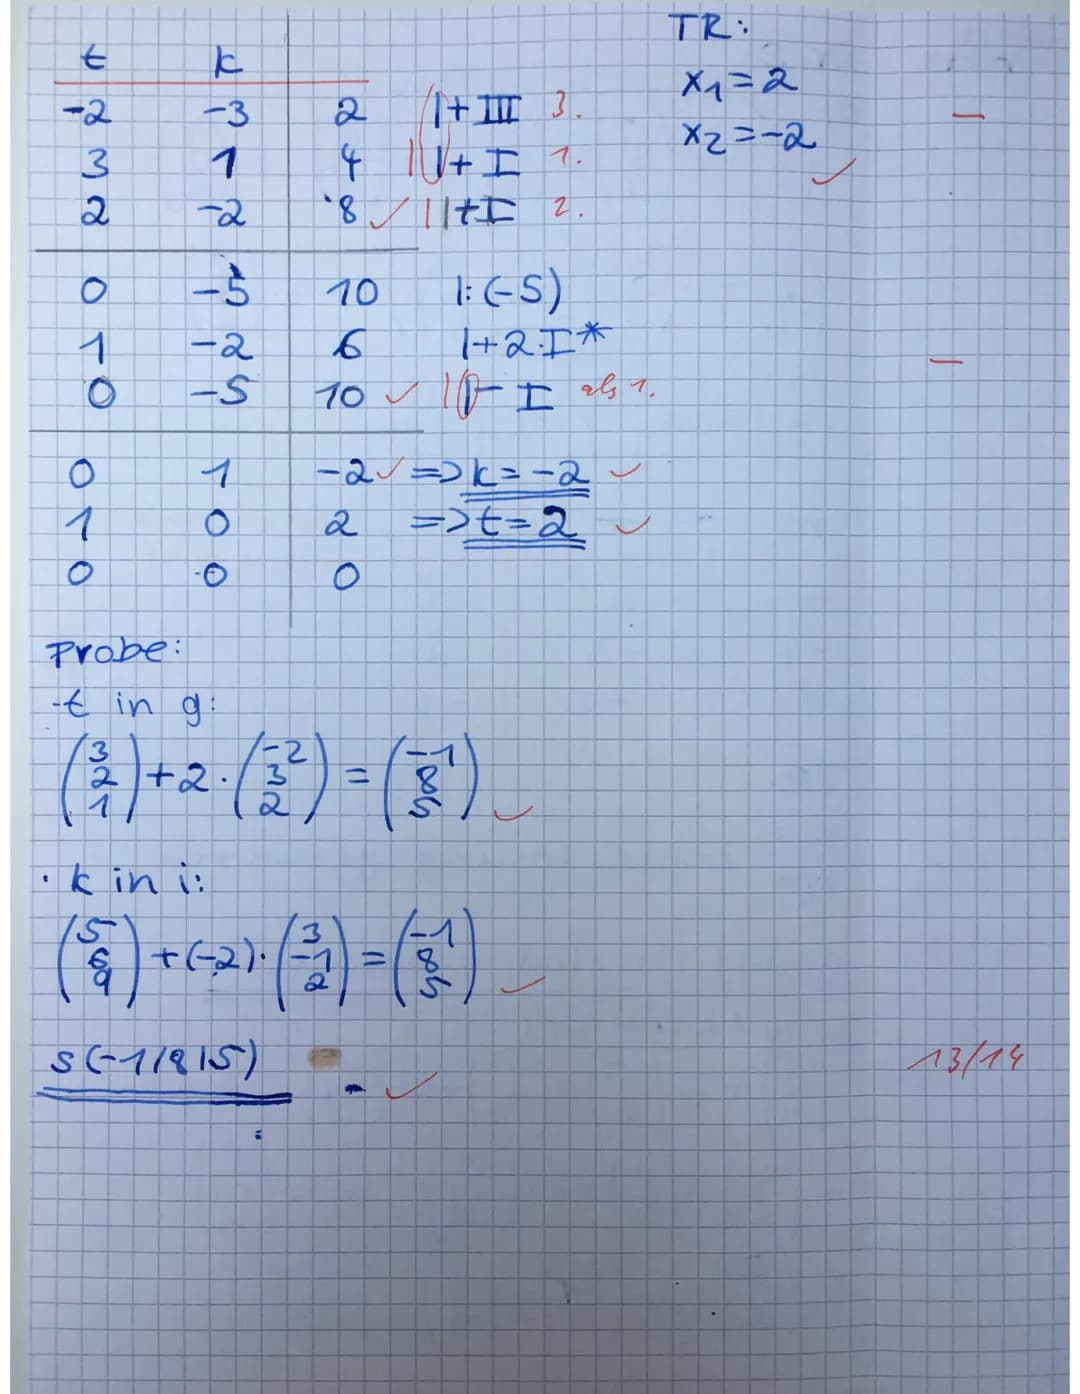 TR:
t k
x₁=2
-2 -3 2 |+III 3.
x₂=-2 ✓
3 1 4 |+I 1.
2 -2 8 ✓ |+I 2.
0 -5 10 |:(-5)
1 -2 6 |+2·I*
0 -5 10 ✓ |-I als 1.
0 1 -2 ✓ => k=-2 ✓
1 0 2 => t=2 ✓
0 0 0
Probe:
-t in g:
(3 2 1) + 2·(-2 3 2) = (-1 8 5) ✓
· k in i:
(5 6 9) + (-2)·(3 -1 2) = (-1 8 5) ✓
S(-1/8|5) ✓
13/14